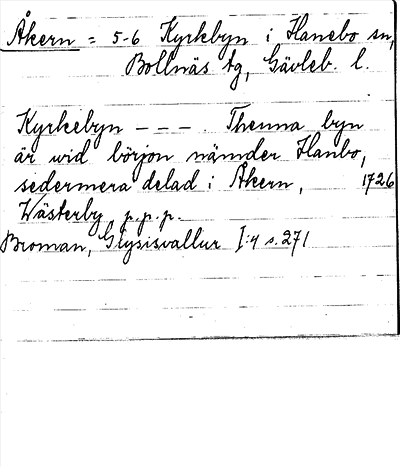 Åkern = 5-6 Kyrkbyn i Hanebo sn,
Bollnäs tg, Gävleb. l.
Kyrkebyn - - - . Thenna byn
är wid början nämder Hanbo,
sedermera delad i Åkern, 1726
Wästerby p.p.p.
Broman, Glysisvallur I:4 s. 271